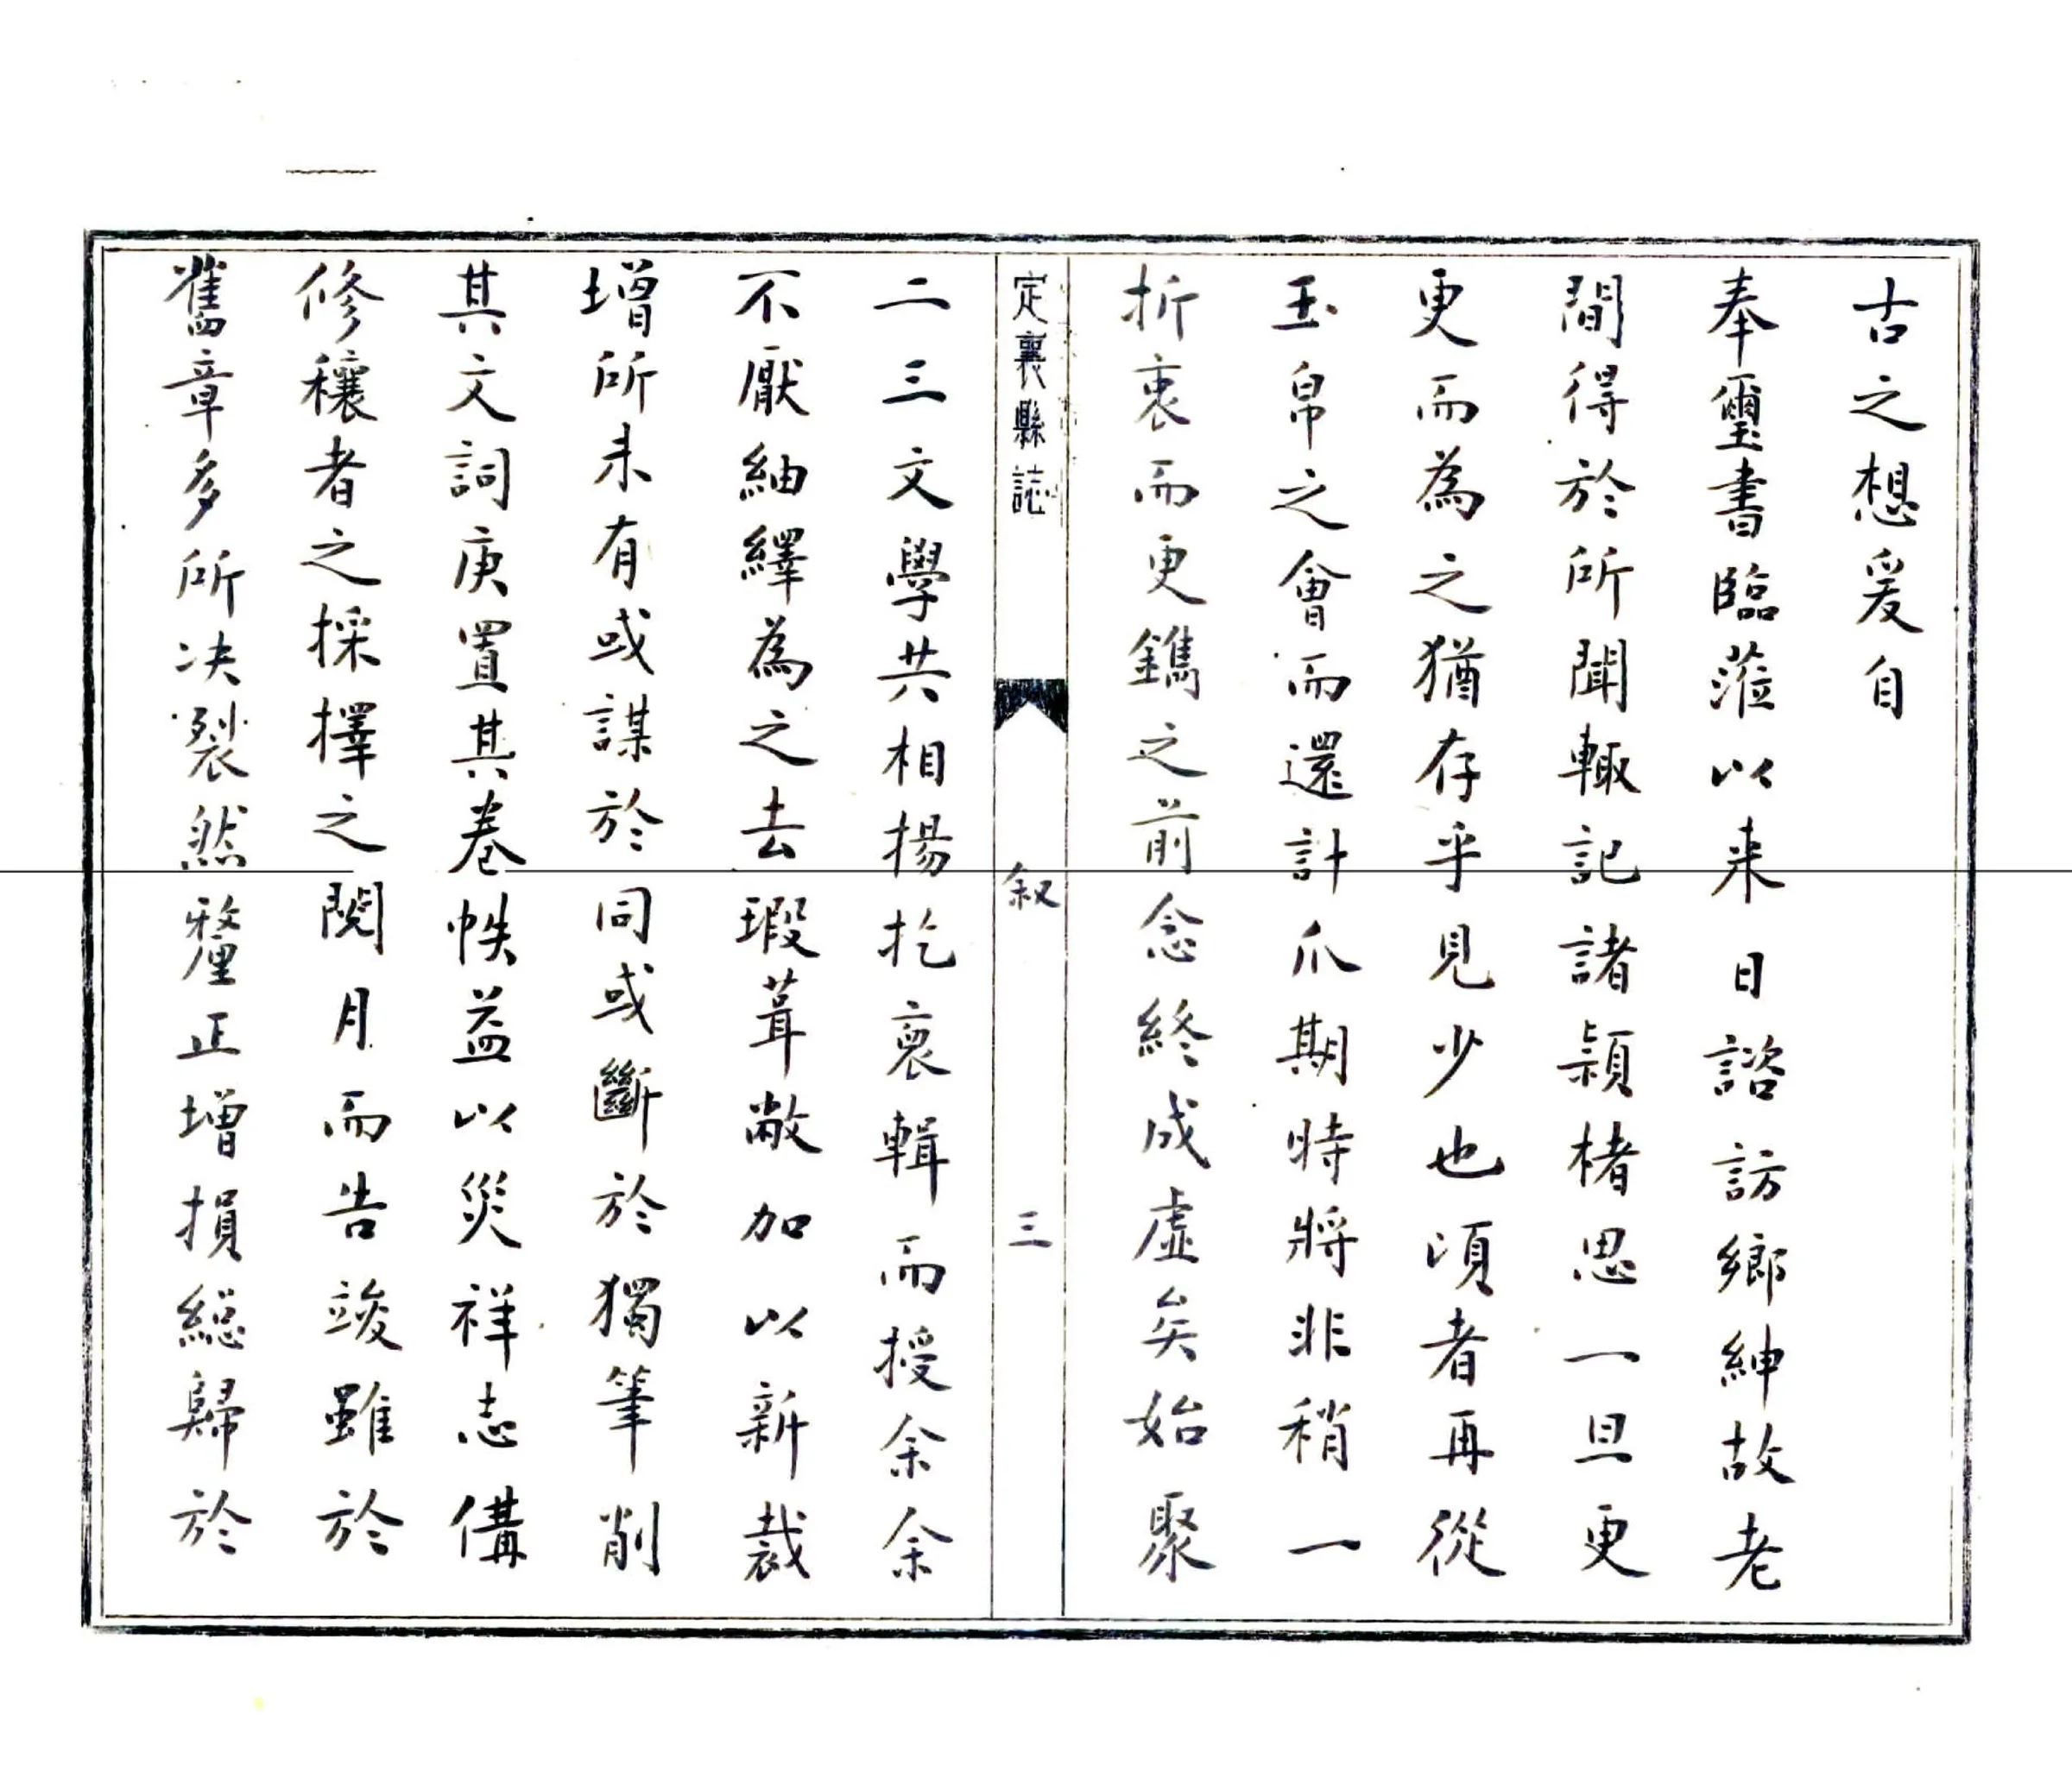 古之想爰自
奉璽書臨蒞以来日諮訪鄉紳故老
間得於所聞輙記諸穎楮思一旦更
更而為之猶存乎見少也頃者再從
玉帛之會而還計爪期時將非稍一
折衷而更鐫之前念終成虛矣始聚
定襄縣誌
叙
三
二三文學共相揚扢裒輯而授余余
不厭紬繹為之去瑕葺敝加以新裁
增所未有或謀於同或斷於獨筆削
其文詞庚置其卷帙益以災祥志俻
修穰者之採擇之閱月而告竣雖於
舊章多所决裂然釐正增損總歸於